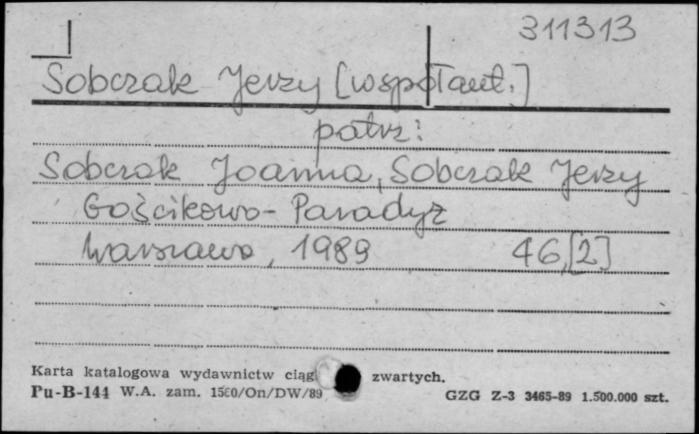 311313
Sobczak Jerzy [współaut.]
patrz:
Sobczak Joanna, Sobczak Jerzy
Gościkowo - Paradyż
Warszawa, 1989 46,[2]
Karta katalogowa wydawnictw ciągł zwartych.
Pu-B-144 W.A. zam. 1560/On/DW/89 GZG Z-3 3465-89 1.500.000 szt.